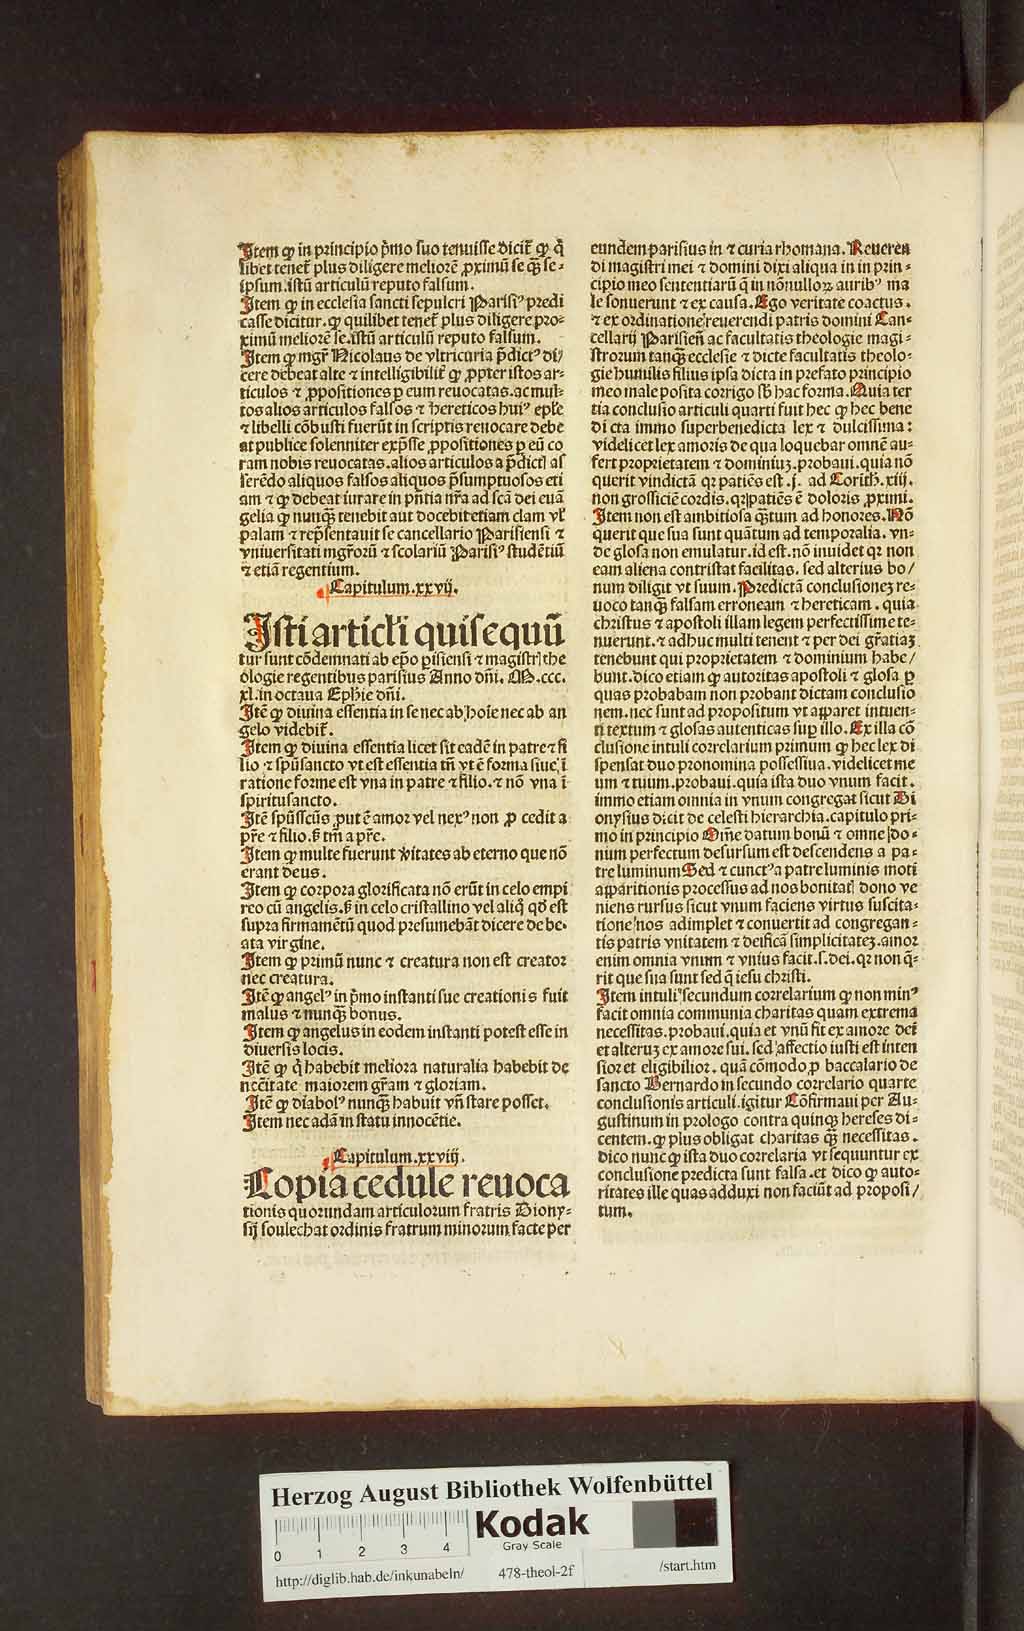 Itē qꝫ in principio p̄mo suo tenuisse dicit̄ qꝫ q̄
libet tenet̄ plus diligere meliorē ꝓximū se qꝫ̄ se-
ipsum. istū articulū reputo falsum.
Item qꝫ in ecclesia sancti sepulcri Parisiꝰ predi
casse dicitur. qꝫ quilibet tenet̄ plus diligere pro-
ximū meliorē se. istū articulū reputo falsum.
Item qꝫ mgr̄ Nicolaus de vltricuria p̄dictꝰ di/
cere debeat alte ⁊ intelligibilit̄ qꝫ ꝓpter istos ar-
ticulos ⁊ ꝓpositiones ꝑ eum reuocatas. ac mul-
tos alios articulos falsos ⁊ hereticos huiꝰ epl̄e
⁊ libelli cōbusti fuerūt in scriptis reuocare debe
at publice solenniter exp̄sse ꝓpositiones ꝑ eū co
ram nobis reuocatas. alios articulos a p̄dictꝭ as
serēdo aliquos falsos aliquos p̄sumptuosos eti
am ⁊ qꝫ debeat iurare in pn̄tia nr̄a ad scā dei euā
gelia qꝫ nunqꝫ̄ tenebit aut docebit etiam clam vl̄
palam ⁊ rep̄sentauit se cancellario Parisiensi ⁊
vniuersitati mgr̄orū ⁊ scolariū Parisiꝰ studētiū
⁊ etiā regentium.
Capitulum. xxvij.
Isti articl̄i qui sequū
tur sunt cōdemnati ab epō ꝑisiensi ⁊ magistrꝭ the
ologie regentibus parisius Anno dn̄i. M. ccc.
xl. in octaua Ephie dn̄i.
Itē qꝫ diuina essentia in se nec ab hoīe nec ab an
gelo videbit̄.
Item qꝫ diuina essentia licet sit eadē in patre ⁊ fi
lio ⁊ spūsancto vt est essentia tn̄ vt ē forma siue ī
ratione forme est vna in patre ⁊ filio. ⁊ nō vna ī
spiritusancto.
Itē spūsscūs ꝓut ē amor vel nexꝰ non ꝓcedit a
pr̄e ⁊ filio. sꝫ tm̄ a pr̄e.
Item qꝫ multe fuerunt v̄itates ab eterno que nō
erant deus.
Item qꝫ corpora glorificata nō erūt in celo empi
reo cū angelis. sꝫ in celo cristallino vel aliq̄ qd̄ est
supra firmamētū quod presumebāt dicere de be-
ata virgine.
Item qꝫ primū nunc ⁊ creatura non est creator
nec creatura.
Itē qꝫ angelꝰ in p̄mo instanti sue creationis fuit
malus ⁊ nunqꝫ̄ bonus.
Item qꝫ angelus in eodem instanti potest esse in
diuersis locis.
Itē qꝫ q̄ habebit meliora naturalia habebit de
ncc̄itate maiorem gr̄am ⁊ gloriam.
Itē qꝫ diabolꝰ nunqꝫ̄ habuit vn̄ stare posset.
Item nec adā in statu innocētie.
Capitulum. xxviij.
Copia cedule reuoca
tionis quorundam articulorum fratris Diony-
sij soulechat ordinis fratrum minorum facte per
eundem parisius in ⁊ curia rhomana. Reueren
di magistri mei ⁊ domini dixi aliqua in in prin-
cipio meo sententiarū q̄ in nōnulloꝝ auribꝰ ma
le sonuerunt ⁊ ex causa. Ego veritate coactus.
⁊ ex ordinatione reuerendi patris domini Can-
cellarij Parisien̄ ac facultatis theologie magi-
strorum tanqꝫ̄ ecclesie ⁊ dicte facultatis theolo-
gie humilis filius ipsa dicta in prefato principio
meo male posita corrigo sb̄ hac forma. Quia ter
tia conclusio articuli quarti fuit hec qꝫ hec bene
dicta immo superbenedicta lex ⁊ dulcissima:
videlicet lex amoris de qua loquebar omnē au-
fert proprietatem ⁊ dominiuꝫ. probaui. quia nō
querit vindictā qꝛ patiēs est. j. ad Corith̄. xiij.
non grossiciē cordis. qꝛ patiēs ē doloris ꝓximi.
Item non est ambitiosa qꝫ̄tum ad honores. Nō
querit que sua sunt quātum ad temporalia. vn-
de glosa non emulatur. id est. nō inuidet qꝛ non
eam aliena contristat facilitas. sed alterius bo/
num diligit vt suum. Predictā conclusioneꝫ re-
uoco tanqꝫ̄ falsam erroneam ⁊ hereticam. quia
christus ⁊ apostoli illam legem perfectissime te-
nuerunt. ⁊ adhuc multi tenent ⁊ per dei gr̄atiaꝫ
tenebunt qui proprietatem ⁊ dominium habe/
bunt. dico etiam qꝫ autoritas apostoli ⁊ glosa ꝑ
quas probabam non probant dictam conclusio
nem. nec sunt ad propositum vt apparet intuen-
ti textum ⁊ glosas autenticas suꝑ illo. Ex illa cō
clusione intuli correlarium primum qꝫ hec lex di
spensat duo pronomina possessiua. videlicet me
um ⁊ tuum. probaui. quia ista duo vnum facit.
immo etiam omnia in vnum congregat sicut Di
onysius dicit de celesti hierarchia. capitulo pri-
mo in principio Om̄e datum bonū ⁊ omne do-
num perfectum desursum est descendens a pa-
tre luminum Sed ⁊ cunctꝰ a patre luminis moti
apparitionis processus ad nos bonitatꝭ dono ve
niens rursus sicut vnum faciens virtus suscita-
tione nos adimplet ⁊ conuertit ad congregan-
tis patris vnitatem ⁊ deificā simplicitateꝫ. amor
enim omnia vnum ⁊ vnius facit. s. dei. qꝛ non q̄-
rit que sua sunt sed q̄ iesu christi.
Item intuli secundum correlarium qꝫ non minꝰ
facit omnia communia charitas quam extrema
necessitas. probaui. quia et vnū fit ex amore dei
et alteruꝫ ex amore sui. sed affectio iusti est inten
sior et eligibilior. quā cōmodo ꝓ baccalario de
sancto Bernardo in secundo correlario quarte
conclusionis articuli. igitur Cōfirmaui per Au-
gustinum in prologo contra quinqꝫ hereses di-
centem. qꝫ plus obligat charitas qꝫ̄ necessitas.
dico nunc qꝫ ista duo correlaria vt sequuntur ex
conclusione predicta sunt falsa. et dico qꝫ auto-
ritates ille quas adduxi non faciūt ad proposi/
tum.
Herzog August Bibliothek Wolfenbüttel
Kodak
Gray Scale
0 1 2 3 4
http://diglib.hab.de/inkunabeln/ 478-theol-2f /start.htm